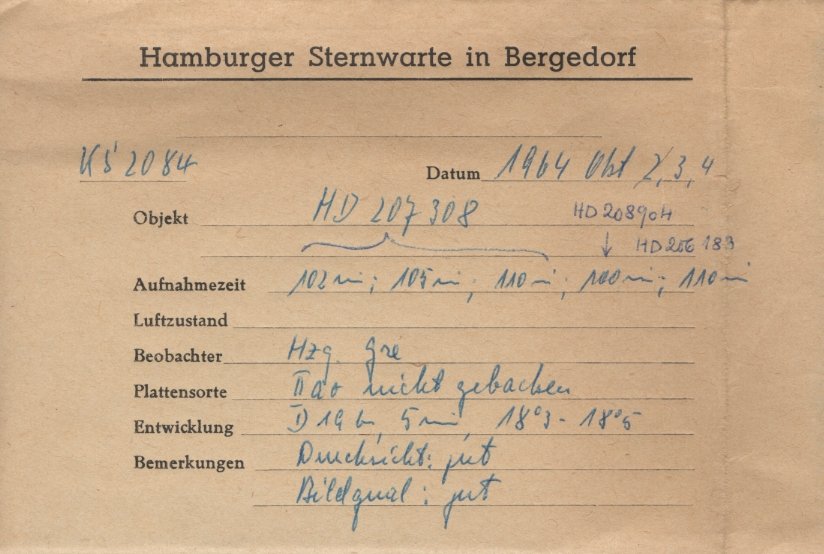 Hamburger Sternwarte in Bergedorf
KS 2084 Datum 1964 Okt 2, 3, 4
Objekt HD 207 308 HD 208904
↓ HD 206 183
Aufnahmezeit 102 mi; 105 mi; 110 mi; 100 mi; 110 mi
Luftzustand
Beobachter Hzg. Gre
Plattensorte IIao nicht gebacken
Entwicklung D19b, 5 mi, 18°3 - 18°5
Bemerkungen Durchsicht: gut
Bildqual: gut